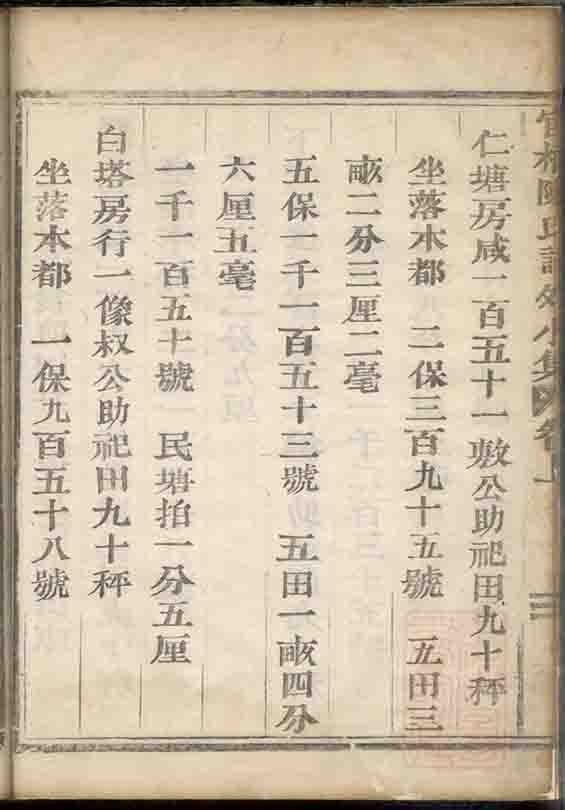 仁塘房咸一百五十一敷公助祀田九十秤
坐落本都　二保三百九十五號　五田三
畝二分三厘二毫
五保一千一百五十三號　五田一畝四分
六厘五毫
一千一百五十號　民塘拍一分五厘
白塔房行一像叔公助祀田九十秤
坐落本都　一保九百五十八號